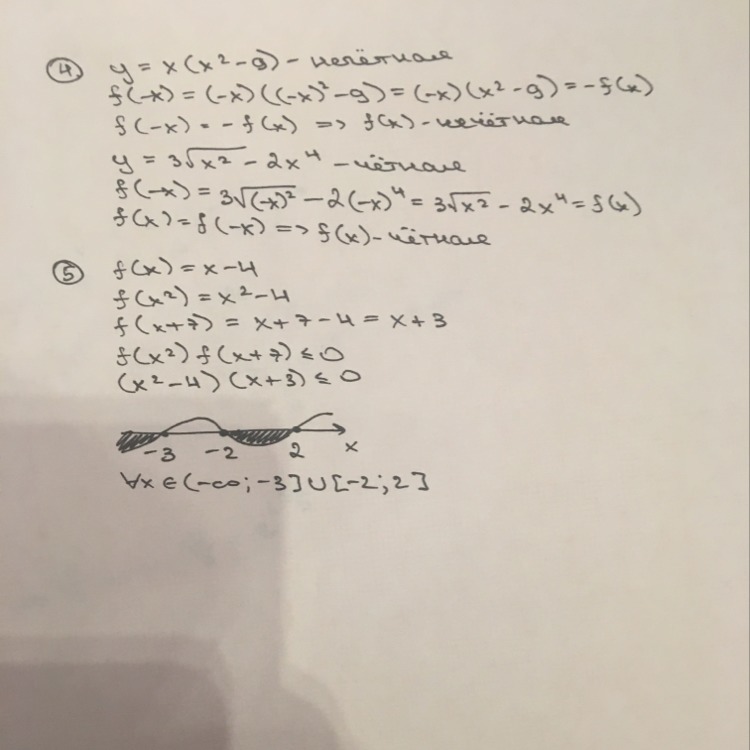 ④ y = x(x² - 9) - нечётная
f(-x) = (-x)((-x)² - 9) = (-x)(x² - 9) = -f(x)
f(-x) = -f(x) => f(x) - нечётная
y = 3√x² - 2x⁴ - чётная
f(-x) = 3√(-x)² - 2(-x)⁴ = 3√x² - 2x⁴ = f(x)
f(x) = f(-x) => f(x) - чётная
⑤ f(x) = x - 4
f(x²) = x² - 4
f(x+7) = x + 7 - 4 = x + 3
f(x²) f(x+7) ≤ 0
(x² - 4)(x + 3) ≤ 0
-3 -2 2 x
∀x ∈ (-∞; -3] ∪ [-2; 2]